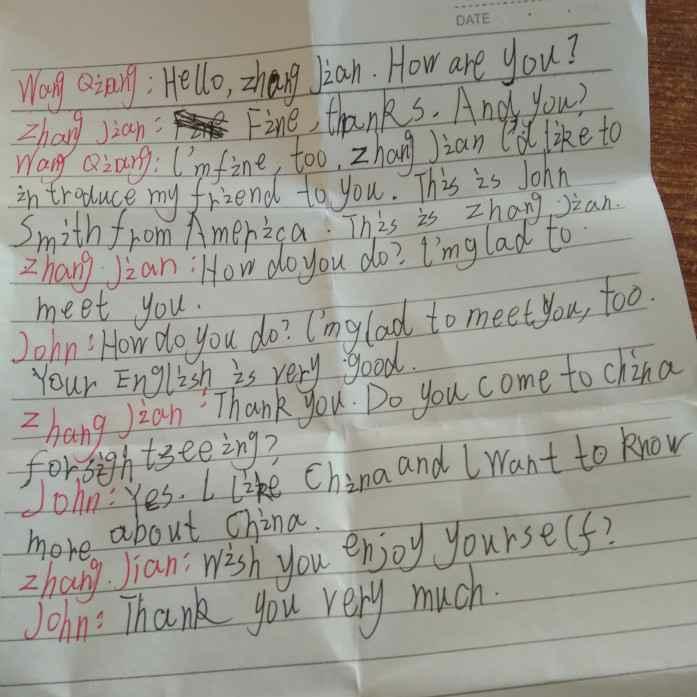 DATE
Wang Qiang: Hello, zhang Jian. How are you?
zhang Jian: Fine, thanks. And you?
Wang Qiang: I'm fine, too, zhang Jian I'd like to
introduce my friend to you. This is John
Smith from America. This is zhang Jian.
zhang Jian: How do you do? I'm glad to
meet you.
John: How do you do? I'm glad to meet you, too.
Your English is very good.
zhang Jian: Thank you. Do you come to china
for sightseeing?
John: Yes. I like China and I want to know
more about China.
zhang Jian: wish you enjoy yourself?
John: Thank you very much.